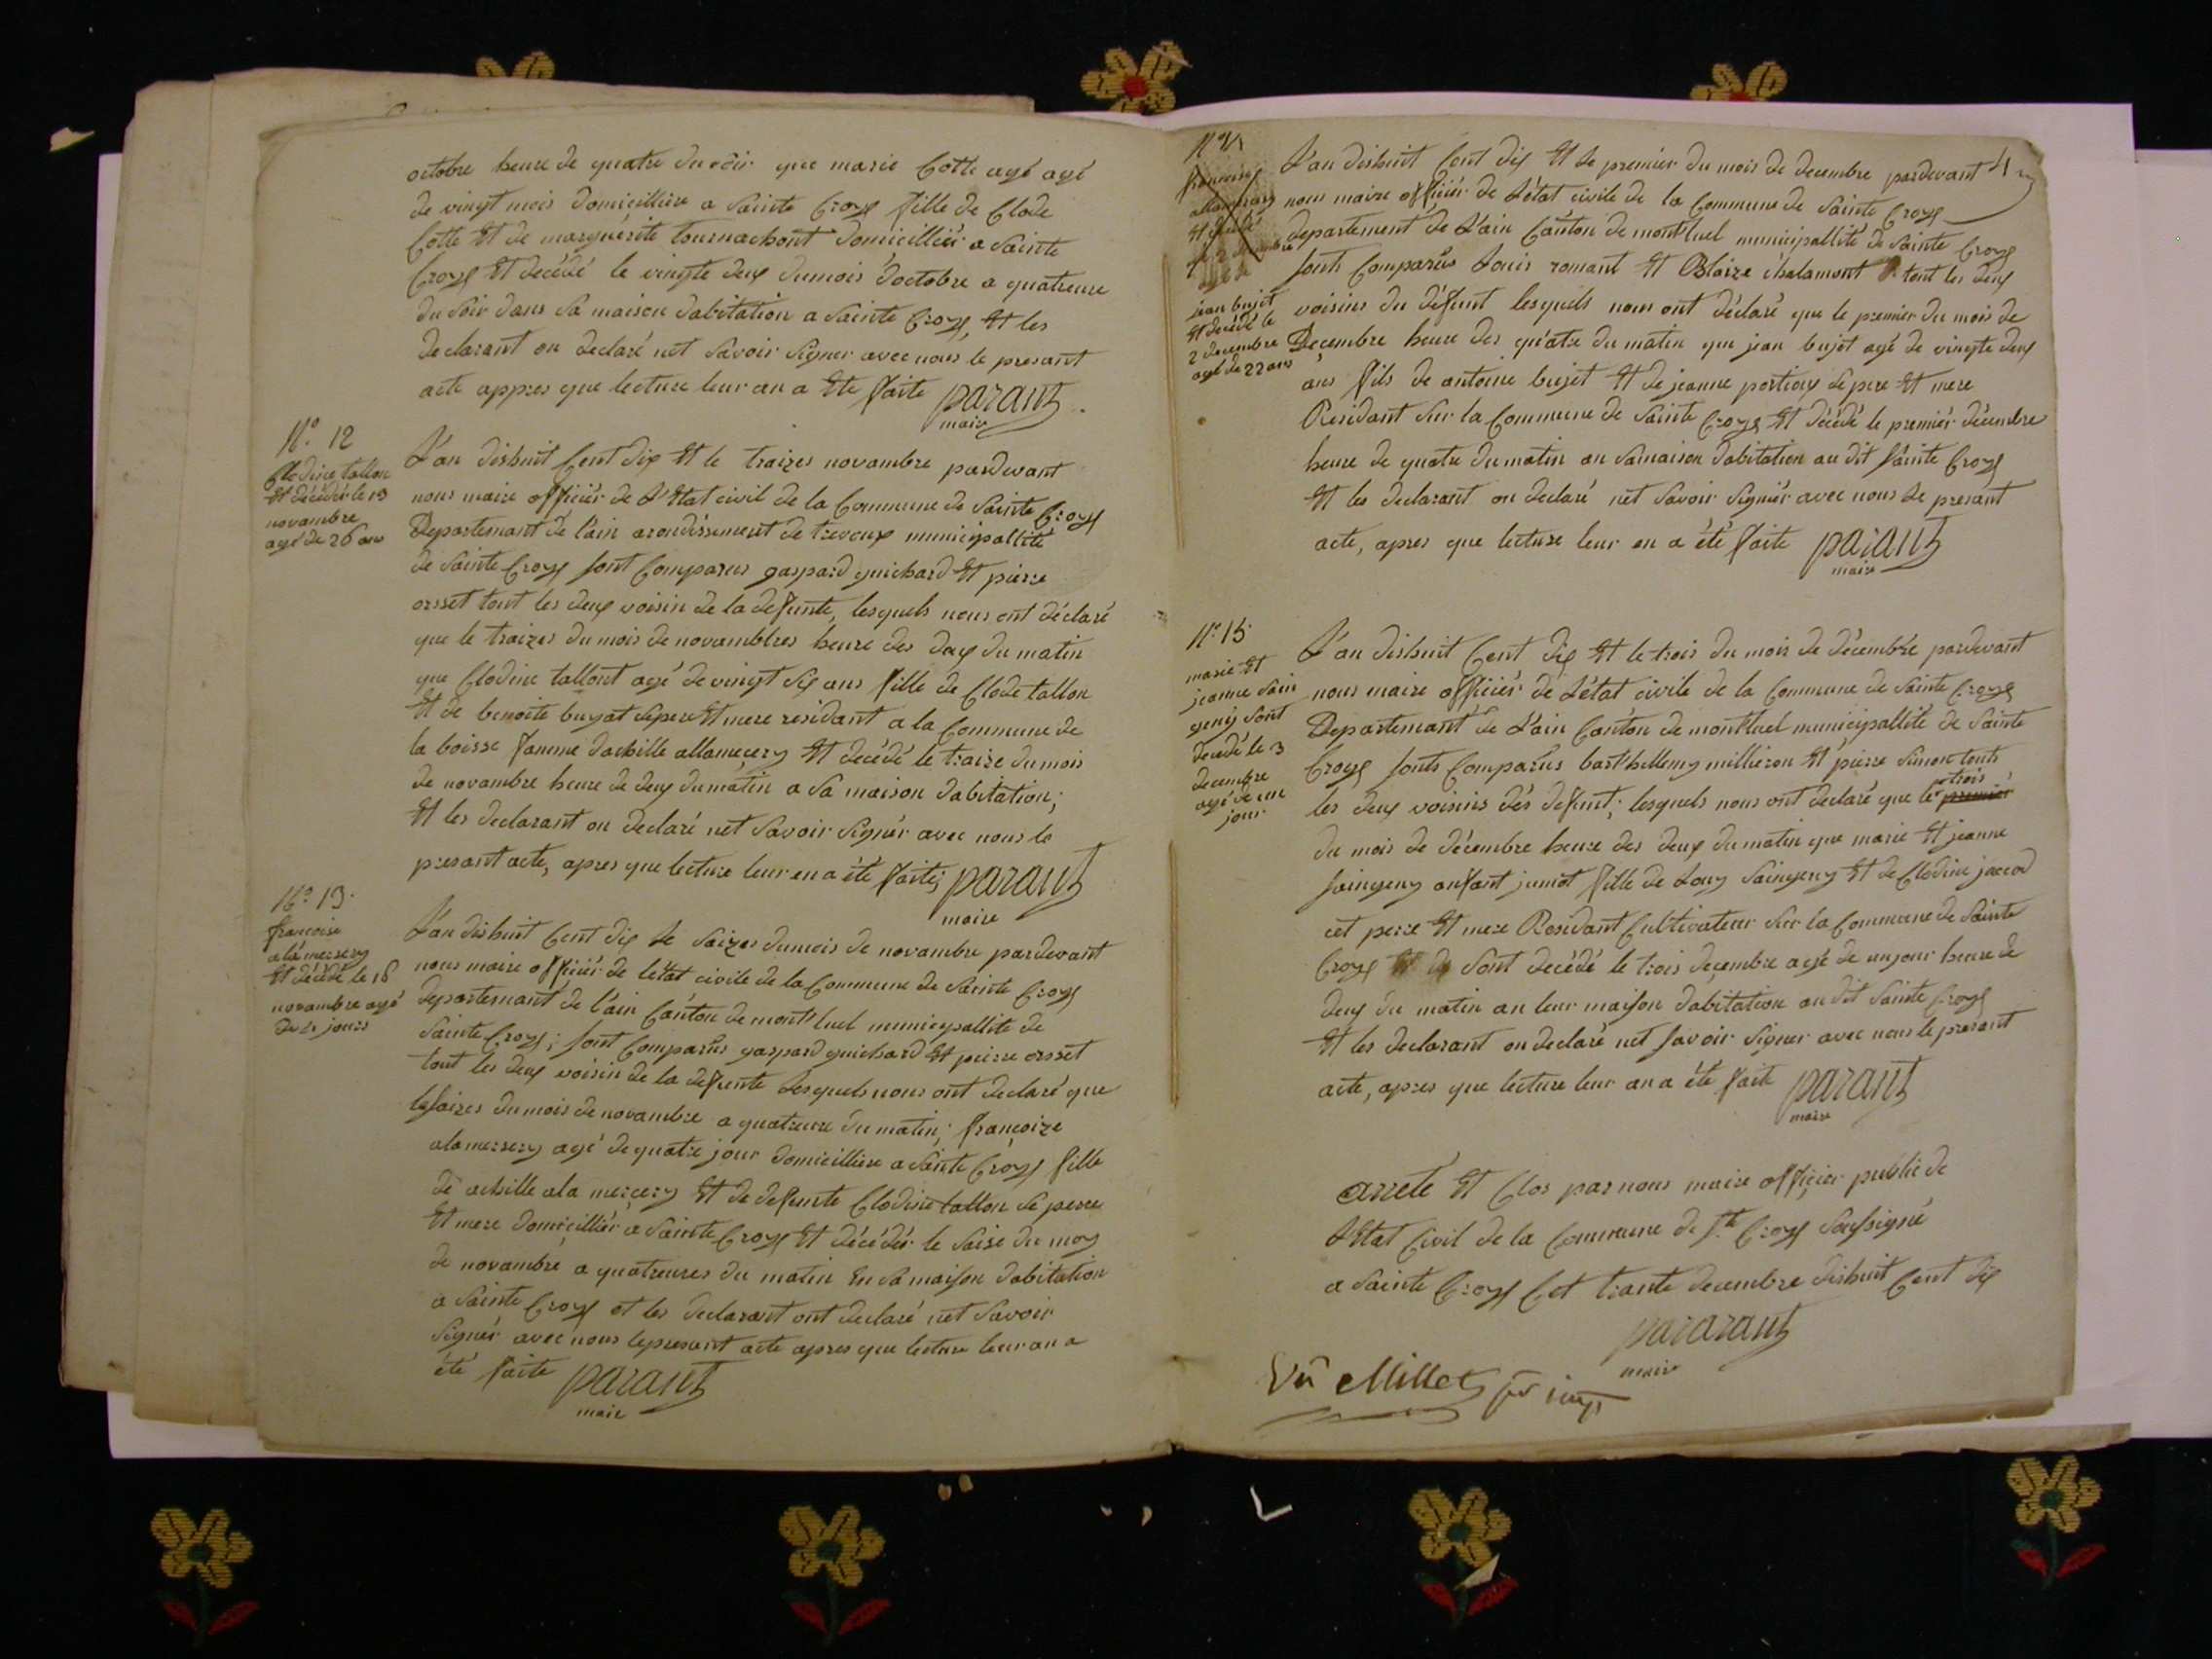 octobre heure de quatre du soir que marie Cotte agé agé
de vingt mois domicillière a Sainte Croys fille de Clode
Cotte Et de marguerite tournachont domicilliér a Sainte
Croys Et decédé le vingte deux dumois doctobre a quatreure
du Soir dans Sa maison dabitation a Sainte Croys, Et les
declarant on declaré net Savoir Signer avec nous le presant
acte appres que lecture leur an a Ete faite parant
maire
N.º 12
Clodine tallon
Et décédér le 13
novambre
agé de 26 ans
L'an dishuit Cent dix Et le traizes novambre pardevant
nous maire officiér de L'Etat civil de la Commune de Sainte Croys
Departemant de l'ain arondissement de trevoux municipallité
de Sainte Croys sont Comparus gaspard guichard Et pierre
orsset tout les deux voisin de la defunte, lesquels nous ont déclaré
que le traizes du mois de novambres heure des deux du matin
que Clodine tallont agé de vingt Six ans fille de Clode tallon
Et de benoite buyat Sepere Et mere residant a la Commune de
la boisse famme dachille allamecery Et decédé le traize du mois
de novambre heure de deux du matin a Sa maison dabitation;
Et les declarant on declaré net Savoir Signér avec nous le
presant acte, apres que lecture leur en a été faite; parant
maire
N.º 13.
francoise
alamersery
Et décédé le 16
novambre agé
de 4 jours
L'an dishuit Cent dix Le Saizes dumois de novambre pardevant
nous maire officiér de létat civile de la Commune de Sainte Croys
departemant de l'ain Canton de montluel municypallite de
Sainte Croys; sont Comparus gaspard guichard Et peirre orsset
tout les deux voisin de la defunte Lesquels nous ont declaré que
le saizes dumois de novambre a quatreure du matin; françoize
alamersery agé de quatre jour domicillière a Sainte Croys fille
de achille ala mercery Et de defunte Clodine tallon Se perre
Et mere domicilliér a Sainte Croys Et décédér le Saise du moy
de novambre a quatreures du matin En Sa maison dabitation
a Sainte Croys et les declarant ont declaré net Savoir
Signér avec nous le presant acte apres que lecture leur an a
été faite parant
maire
4
L'an dishuit Cent dix Et Le premier du mois de decembre pardevant
nous maire officiér de L'état civile de la Commune de Sainte Croys
departement de L'ain Canton de montluel municipallité de Sainte Croys
sonts Comparus Louis romant Et Blaize chalamont tout les deux
jean bujet
Et decédé le
2 decembre
agé de 22 ans
voisins du défunt lesquels nous ont déclaré que le premier du mois de
Decembre heure des quatre du matin que jean bujet agé de vingte deux
ans fils de antoine bujet Et de jeanne portioux Se pere Et mere
Residant Sur la Commune de Sainte Croys Et décédé le premiér décembre
heure de quatre du matin an Samaison dabitation au dit Sainte Croys
Et les declarant on declaré net Savoir Signiér avec nous Le presant
acte, apres que lecture leur en a été faite parant
maire
N.º 15
marie Et
jeanne Sain
geniy Sont
decedé le 3
decembre
agé de un
jour
L'an dishuit Cent dix Et le trois du mois de décembre pardevant
nous maire officiér de L'état civile de la Commune de Sainte Croys
Departemant de L'ain Canton de montluel municipallité de Sainte
Croys sonts Comparus barthellemy millieron Et pierre Simon touts
les deux voisins dés defunt; lesquels nous ont declaré que le trois premier
du mois de décembre heure des deux du matin que marie Et jeanne
saingeny anfant jumot fille de Louy Saingeny Et de Clodine jaccod
cet perre Et mere Residant Cultivateur Sur la Commune de Sainte
Croys Sont decédé le trois decembre agé de unjour heure de
deux du matin an leur maison dabitation au dit Sainte Croys
Et les declarant on declaré net savoir Signer avec nous le presant
acte, apres que lecture leur an a été faite parant
maire
arreté Et Clos par nous maire officier public de
L'Etat Civil de la Commune de S.te Croys Soussigné
a Sainte Croys Cet trante decembre dishuit Cent dix
pararant
maire
Vû Millet